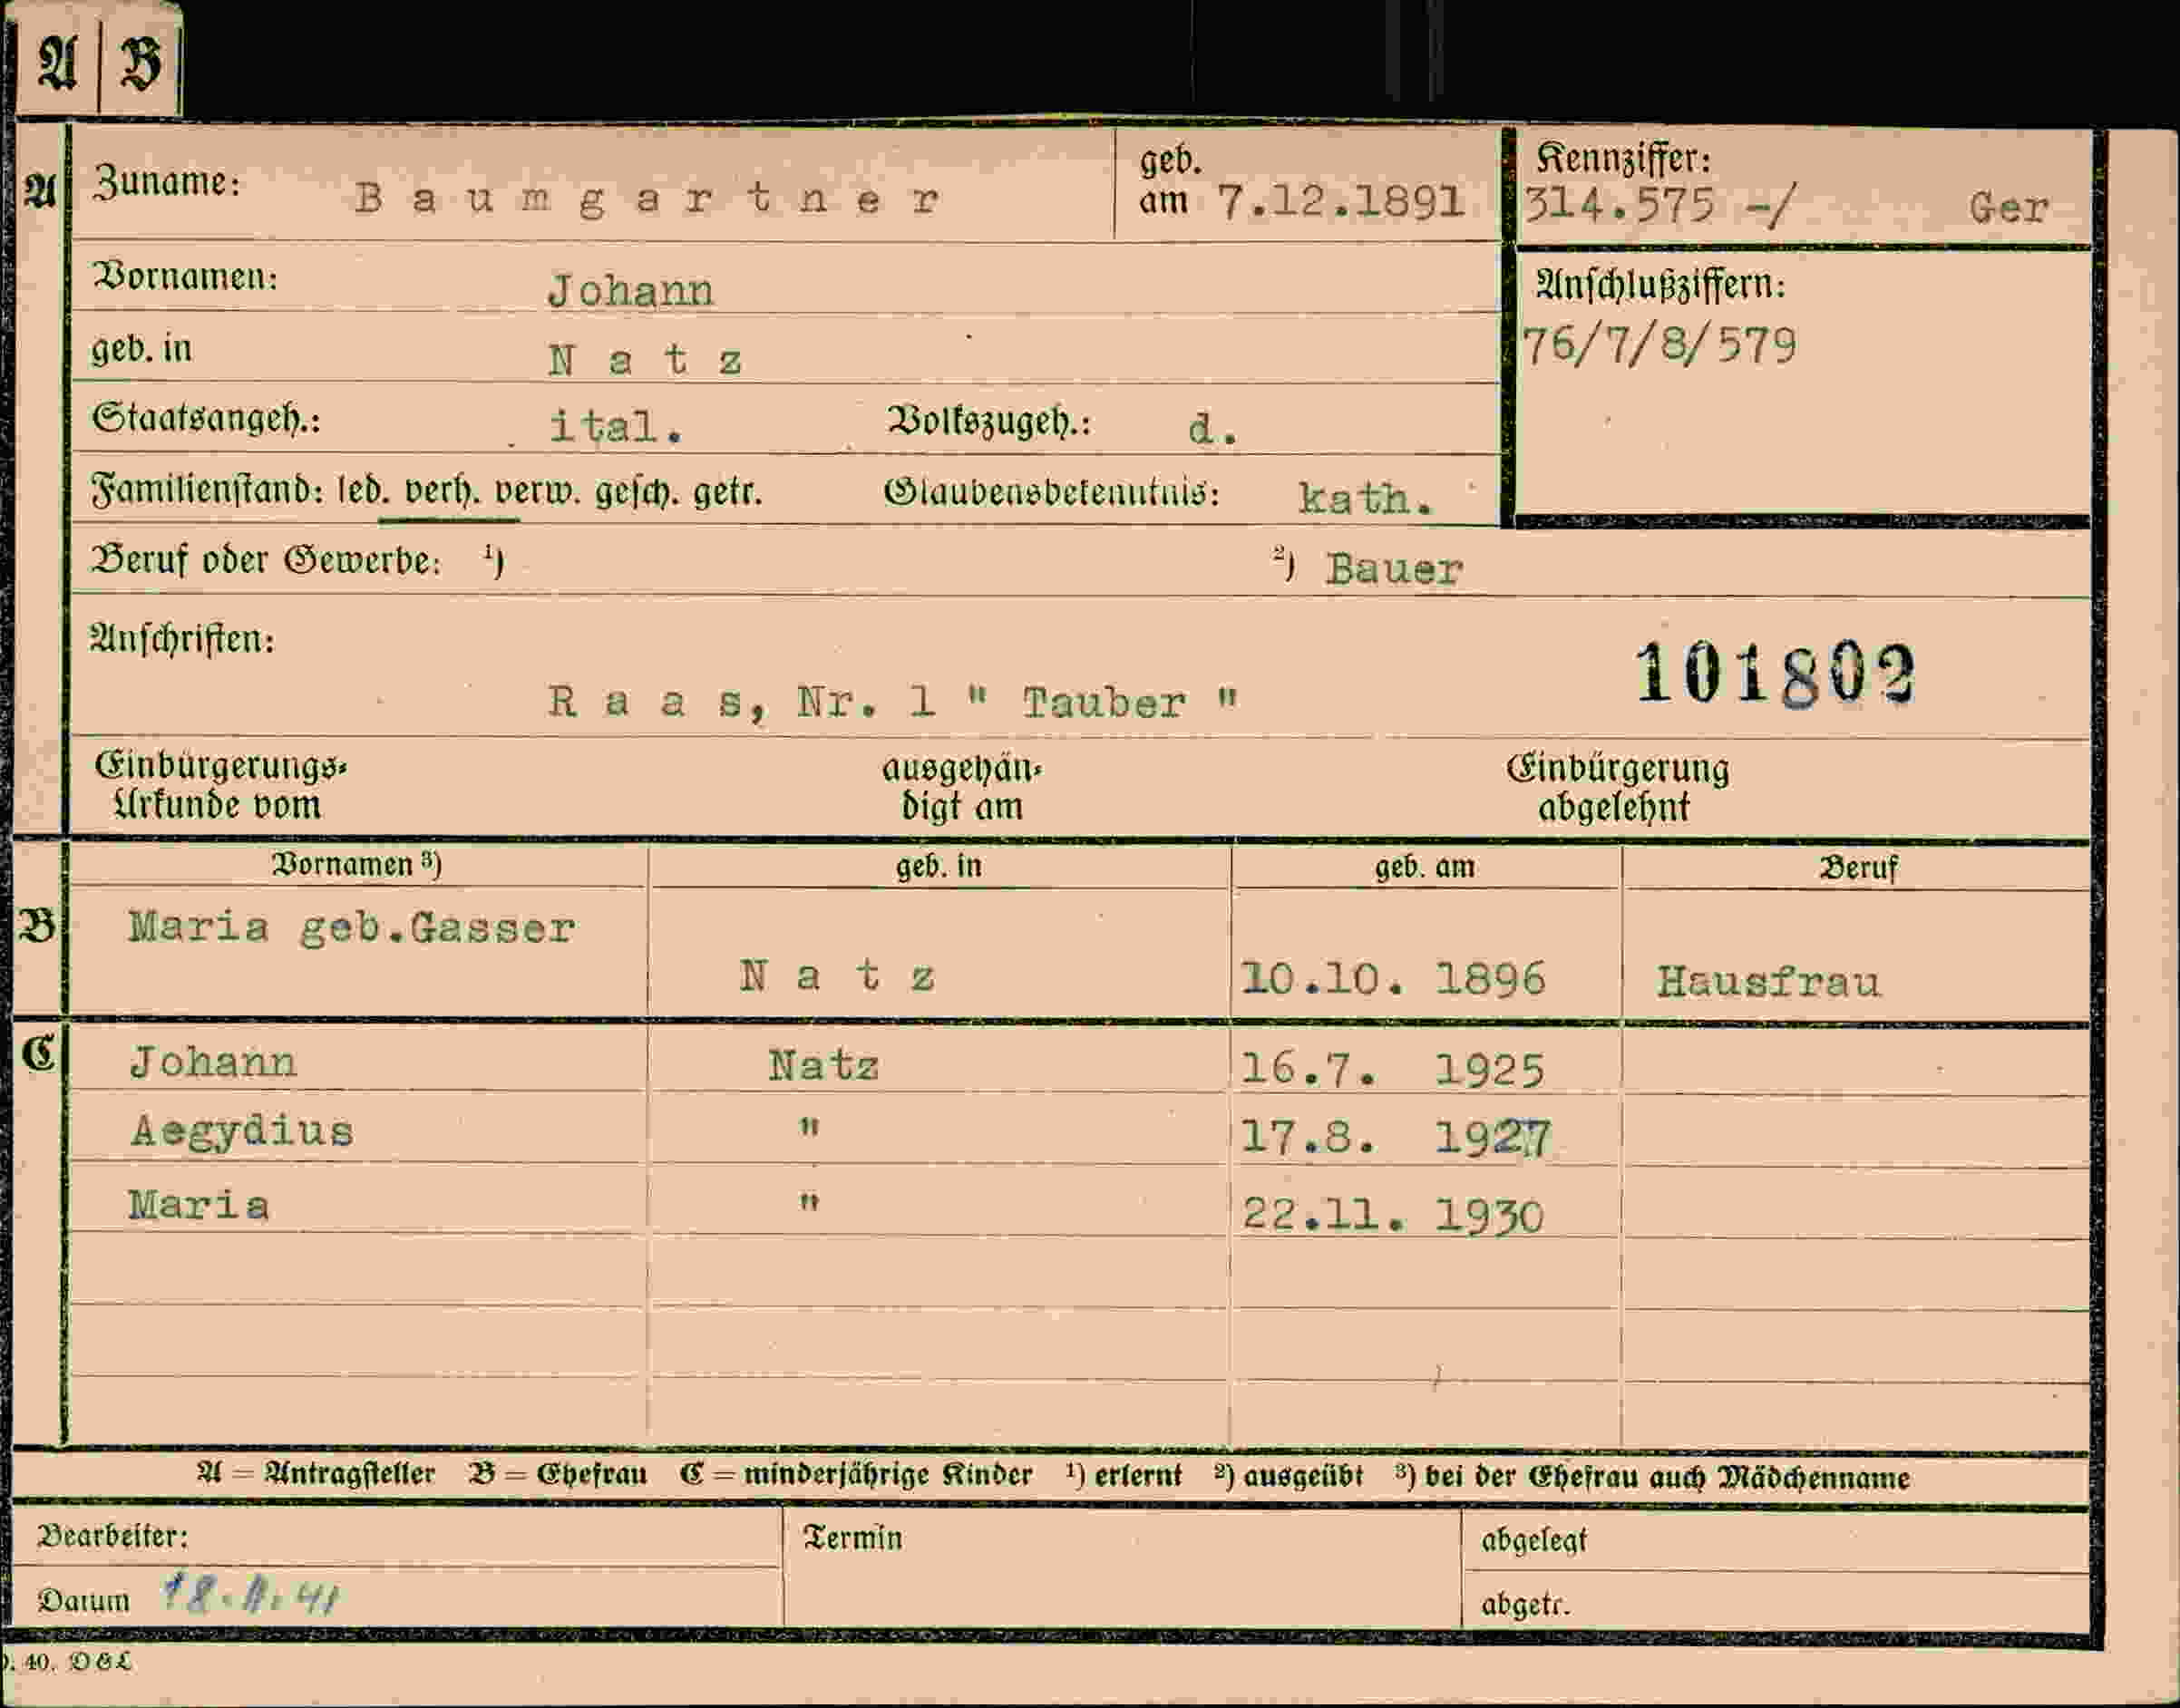 A | B
A Zuname: Baumgartner geb. am 7.12.1891 Kennziffer: 314.575 -/ Ger
Vornamen: Johann Anschlußziffern:
geb. in Natz 76/7/8/579
Staatsangeh.: ital. Volkszugeh.: d.
Familienstand: led. verh. verw. gesch. getr. Glaubensbekenntnis: kath.
Beruf oder Gewerbe: ¹) ²) Bauer
Anschriften: 101802
Raas, Nr. 1 " Tauber "
Einbürgerungs- ausgehän- Einbürgerung
Urkunde vom digt am abgelehnt
Vornamen ³) geb. in geb. am Beruf
B Maria geb.Gasser
Natz 10.10. 1896 Hausfrau
C Johann Natz 16.7. 1925
Aegydius " 17.8. 1927
Maria " 22.11. 1930
A = Antragsteller B = Ehefrau C = minderjährige Kinder ¹) erlernt ²) ausgeübt ³) bei der Ehefrau auch Mädchenname
Bearbeiter: Termin abgelegt
Datum abgetr.
40. DGL